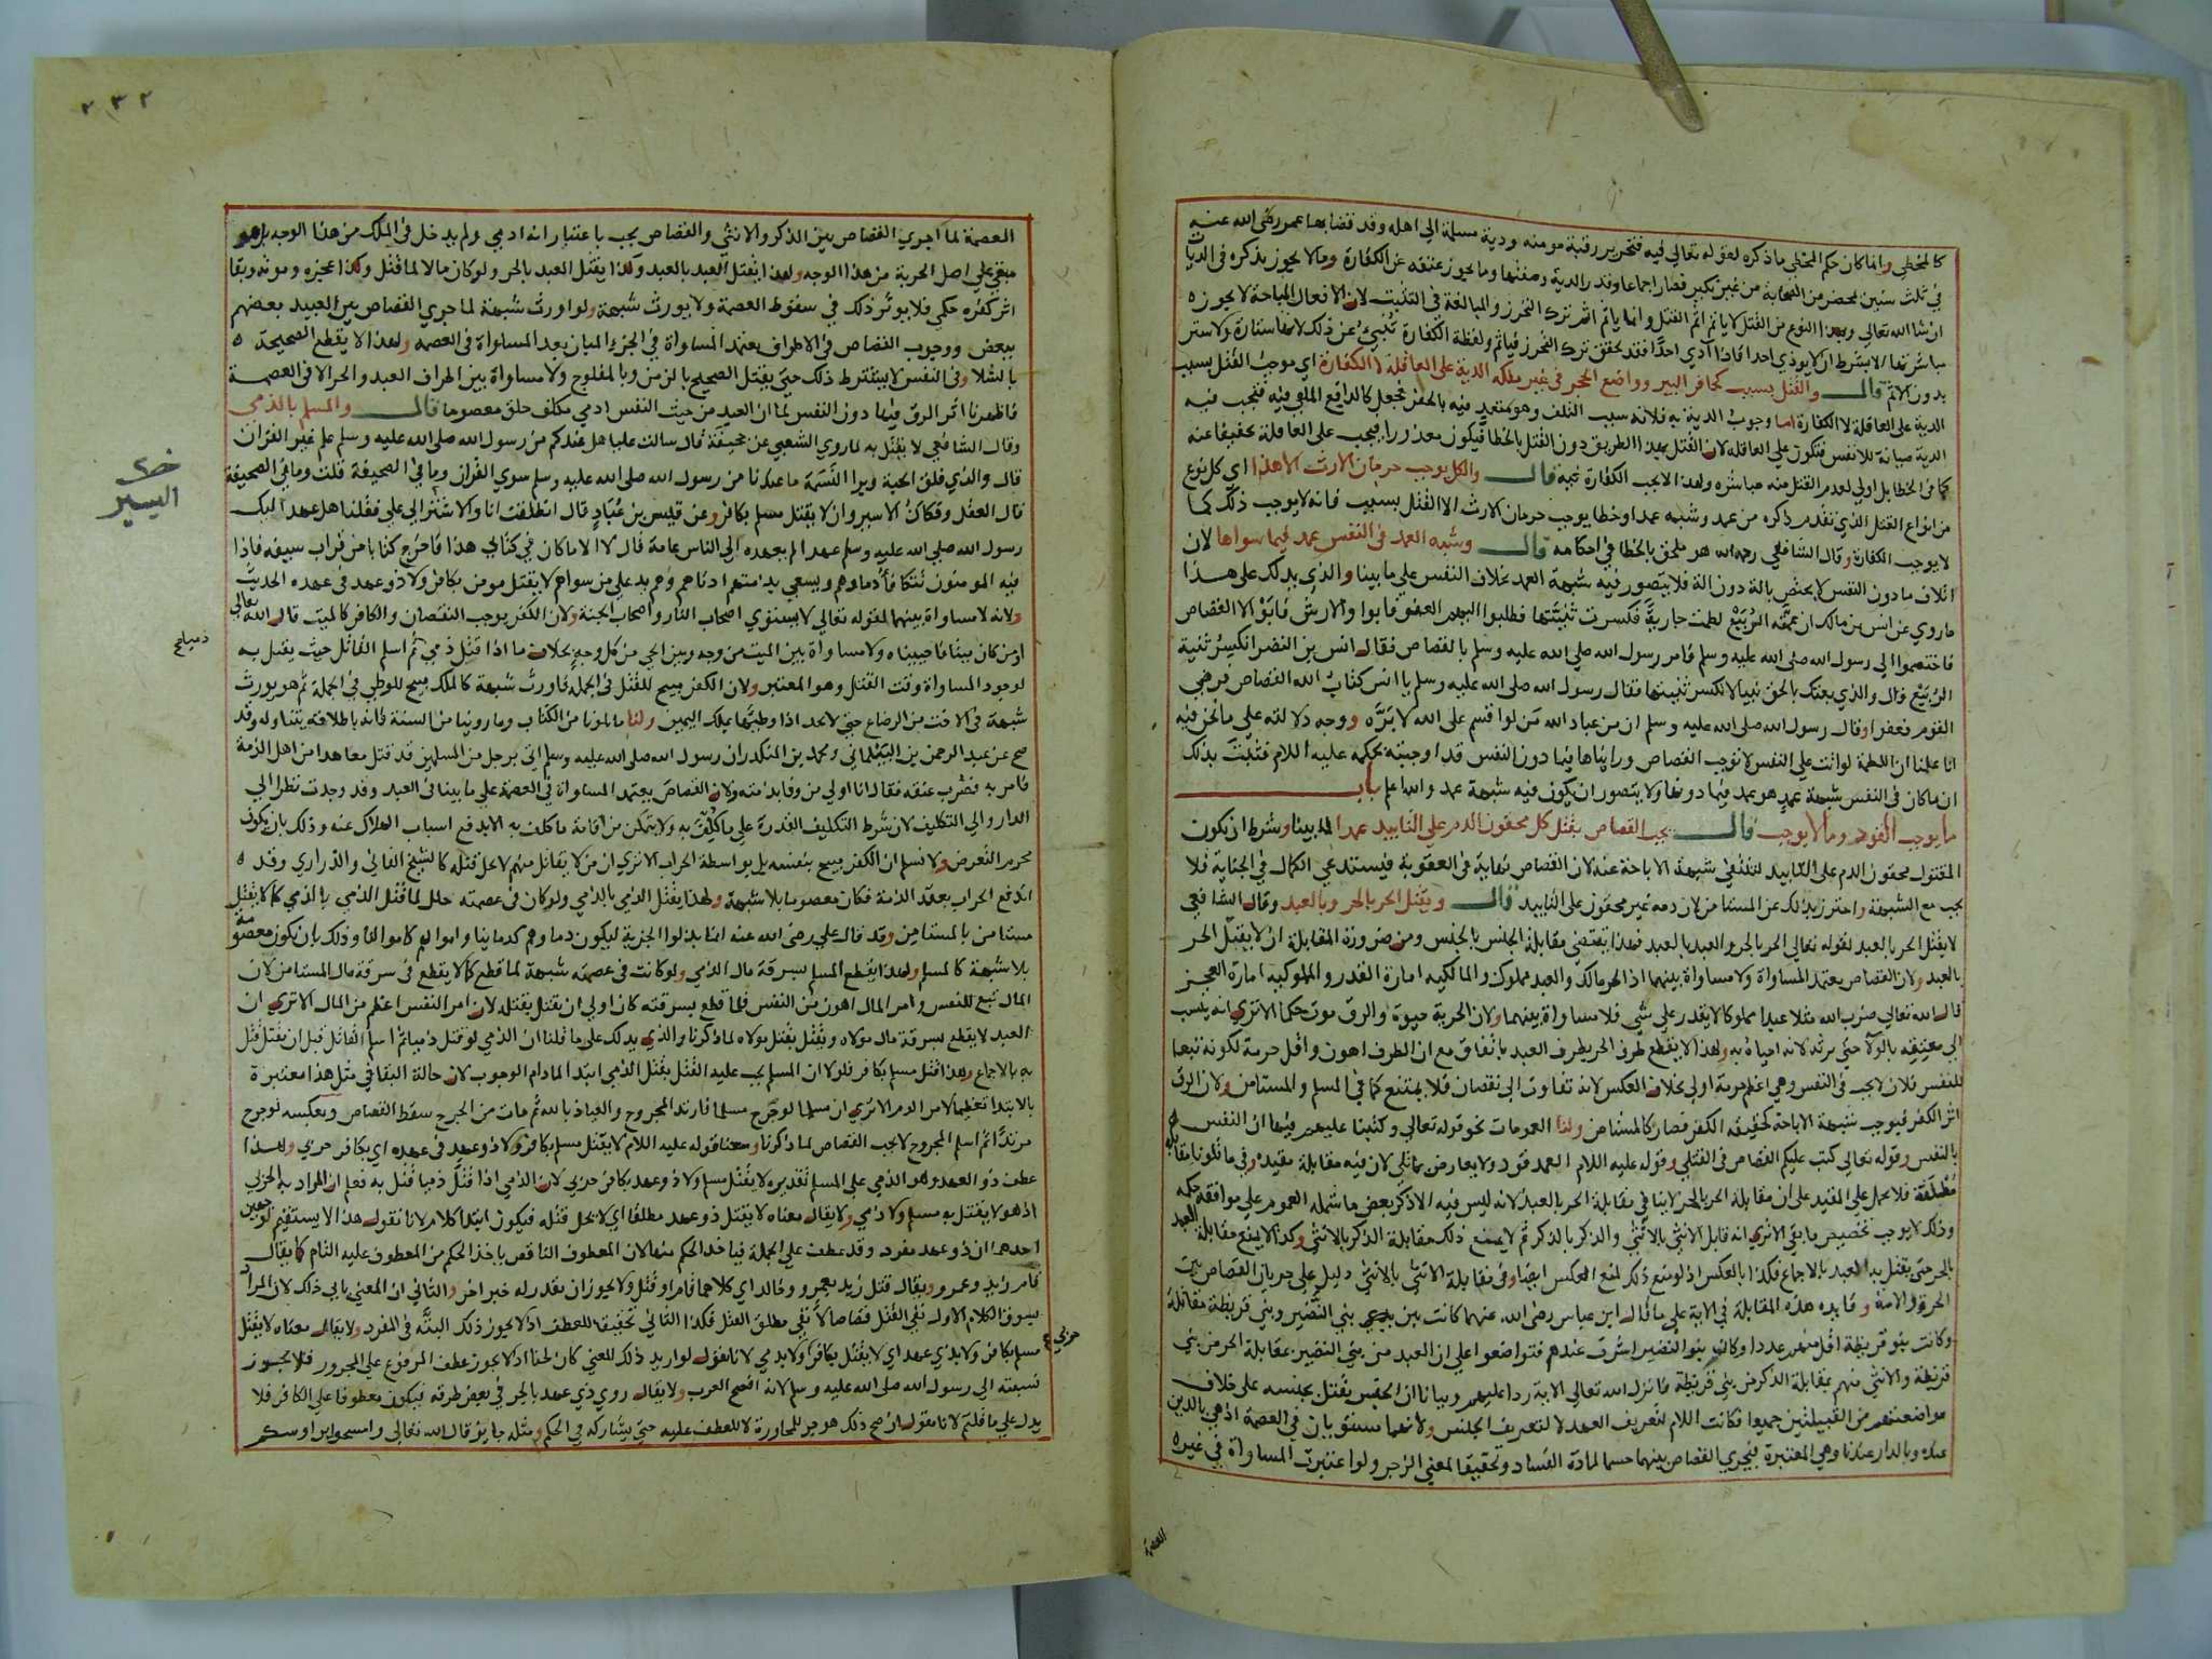 كالمخطي وانما كان حكم المخطي ما ذكره لقوله تعالى فيه فتحرير رقبة مومنة ودية مسلمة الى اهله وقد قضا بها عمر رضى الله عنه
في ثلث سنين بمحضر من الصحابة من غير نكير فصار اجماعا وقدر الدية وصفتها وما يجوز عتقه عن الكفارة وما لا يجوز يذكره في الديات
ان شا الله تعالى وبهذا النوع من القتل لا ياثم اثم القتل وانما ياثم اثم ترك التحرز والمبالغة في التثبت لان الافعال المباحة لا يجوز
مباشرتها الا بشرط ان لا يوذي احدا فاذا آدي احدا فقد تحقق ترك التحرز فياثم ولفظة الكفارة تنبئ عن ذلك لانها ستارة ولا ستر
بدون الاثم قال والقتل بسبب كحافر البير وواضع الحجر في غير ملكه الدية على العاقلة لا الكفارة اي موجب القتل بسبب
الدية على العاقلة لا الكفارة اما وجوب الدية به فلانه سبب التلف وهو متعد فيه بالحفر فجعل كالدافع الملقي فيه فتجب فيه
الدية صيانة للانفس فتكون على العاقله لان القتل بهذا الطريق دون القتل بالخطا فيكون معذورا فيجب على العاقلة تخفيفا عنه
كما في الخطا بل اولى لعدم القتل منه مباشره ولهذا لا يجب الكفارة فيه قال والكل يوجب حرمان الارث الا هذا اي كل نوع
من انواع القتل الذي تقدم ذكره من عمد وشبه عمد وخطا يوجب حرمان الارث الا القتل بسبب فانه لا يوجب ذلك كما
لا يوجب الكفارة وقال الشافعي رحمه الله هو ملحق بالخطا في احكامه قال وشبه العمد في النفس عمد فيما سواها لان
اتلاف ما دون النفس لا يختص بالة دون الة فلا يتصور فيه شبهة العمد بخلاف النفس على ما بينا والذي يدلك على هذا
ما روي عن انس بن مالك ان عمته الربيع لطمت جارية فكسرت ثنيتها فطلبوا اليهم العفو فابوا والارش فابو الا القصاص
فاختصموا الى رسول الله صلى الله عليه وسلم فامر رسول الله صلى الله عليه وسلم بالقصاص فقال انس بن النضر اتكسر ثنية
الربيع قال والذي بعثك بالحق نبيا لا تكسر ثنيتها فقال رسول الله صلى الله عليه وسلم يا انس كتاب الله القصاص فرضي
القوم فعفوا وقال رسول الله صلى الله عليه وسلم ان من عباد الله من لو اقسم على الله لابره ووجه دلالته على ما نحن فيه
انا علمنا ان اللطمة لو اتت على النفس لا توجب القصاص وراينا ها فيما دون النفس قد اوجبته بحكمه عليه السلام فثبت بذلك
ان ما كان في النفس شبهة عمد هو عمد فيما دونها ولا يتصور ان يكون فيه شبهة عمد والله اعلم باب
ما يوجب القود وما لا يوجب قال يجب القصاص بقتل كل محقون الدم على التابيد عمدا لما بينا وشرط ان يكون
المقتول محقون الدم على التابيد لتنتفي شبهة الاباحة عنه لان القصاص نهاية في العقوبة فيستدعي الكمال في الجناية فلا
يجب مع الشبهة واحترز بذلك عن المستامن لان دمه غير محقون على التابيد قال ويقتل الحر بالحر وبالعبد وقال الشافعي
لا يقتل الحر بالعبد لقوله تعالى الحر بالحر والعبد بالعبد فهذا يقتضي مقابلة الجنس بالجنس ومن ضرورة المقابلة ان لا يقتل الحر
بالعبد ولان القصاص يعتمد المساواة ولا مساواة بينهما اذ الحر مالك والعبد مملوك والمالكيه امارة القدر والمملوكيه امارة العجز
قال الله تعالى ضرب الله مثلا عبدا مملوكا لا يقدر على شي فلا مساواة بينهما ولان الحرية حيوة والرق موت حكما الا تري انه ينسب
الى معتقه بالولا حتى يرثه لانه احياه به ولهذا لا يقطع طرف الحر بطرف العبد باتفاق مع ان الطرف اهون واقل حرمة لكونه تبعا
للنفس فلان لا يجب في النفس وهي اعظم حرمة اولى بخلاف العكس لانه تفاوت الى نقصان فلا يمتنع كما في المسلم والمستامن ولان الرق
اثر الكفر فيوجب شبهة الاباحة كحقيقة الكفر فصار كالمستامن ولنا العمومات نحو قوله تعالى وكتبنا عليهم فيها ان النفس
بالنفس وقوله تعالى كتب عليكم القصاص في القتلي وقوله عليه السلام العمد قود ولا يعارض بما تلي لان فيه مقابلة مقيده وفي ما تلونا مقابلة
مطلقة فلا يحمل على المقيد على ان مقابلة الحر بالحر لا ينافي مقابلة الحر بالعبد لانه ليس فيه الا ذكر بعض ما شمله العموم على موافقة حكمه
وذلك لا يوجب تخصيص ما بقي الا تري انه قابل الانثى بالانثى والذكر بالذكر ثم لا يمنع ذلك مقابلة الذكر بالانثى وكذا لا يمنع مقابلة العبد
بالحر حتى يقتل به العبد بالاجماع فكذا بالعكس اذ لو منع ذلك لمنع العكس ايضا وفي مقابلة الانثى بالانثى دليل على جريان القصاص بين
الحرة والامة وفايده هذه المقابلة في الاية على ما قال ابن عباس رضى الله عنهما كانت بين بني النضير وبني قريظة مقاتلة
وكانت بنو قريظة اقل منهم عددا وكان بنو النضير اشرف عندهم فتواضعوا على ان العبد من بني النضير بمقابلة الحر من بني
قريظة والانثى منهم بمقابلة الذكر من بني قريظة فانزل الله تعالى الاية ردا عليهم وبيانا ان الجنس يقتل بجنسه على خلاف
مواضعتهم من القبيلتين جميعا فكانت اللام لتعريف العهد لا لتعريف الجنس ولانهما مستويان في العصمة اذ هي بالدين
عنده وبالدار عندنا وهي المعتبرة فيجري القصاص بينهما حسما لمادة الفساد وتحقيقا لمعنى الزجر ولو اعتبرت المساواة في غيره
العصمة
٢٣٢
العصمة لما اجري القصاص بين الذكر والانثى والقصاص يجب باعتبار انه ادمي ولم يدخل في الملك من هذا الوجه بل هو
مبقي على اصل الحرية من هذا الوجه ولهذا يقتل العبد بالعبد وكذا يقتل العبد بالحر ولو كان مالا لما قتل وكذا عجزه وموته وبقا
اثر كفره حكمي فلا يوثر ذلك في سقوط العصمة ولا يورث شبهة ولو اورث شبهة لما جري القصاص بين العبيد بعضهم
ببعض ووجوب القصاص في الاطراف يعتمد المساواة في الجزء المبان بعد المساواة في العصمه ولهذا لا يقطع الصحيحة
بالشلا وفي النفس لا يشترط ذلك حتى يقتل الصحيح بالزمن وبالمفلوج ولا مساواة بين اطراف العبد والحر الا في العصمة
فاظهرنا اثر الرق فيها دون النفس لما ان العبد من حيث النفس ادمي مكلف خلق معصوما قال والمسلم بالذمي
وقال الشافعي لا يقتل به لما روي الشعبي عن جحيفة قال سالت عليا هل عندكم من رسول الله صلى الله عليه وسلم علم غير القران
قال والذي فلق الحبة وبرا النسمة ما عندنا من رسول الله صلى الله عليه وسلم سوي القران وما في الصحيفة قلت وما في الصحيفة
قال العقل وفكاك الاسير وان لا يقتل مسلم بكافر وعن قيس بن عباد قال انطلقت انا والاشتر الى علي فقلنا هل عهد اليك
رسول الله صلى الله عليه وسلم عهدا لم يعهده الى الناس عامة قال لا الا ما كان في كتابي هذا فاخرج كتابا من قراب سيفه فاذا
فيه المومنون تتكافأ دماوهم ويسعي بذمتهم ادناهم وهم يد على من سواهم لا يقتل مومن بكافر ولا ذو عهد في عهده الحديث
ولانه لا مساواة بينهما لقوله تعالى لا يستوي اصحاب النار واصحاب الجنة ولان الكفر يوجب النقصان والكافر كالميت قال الله تعالى
اومن كان ميتا فاحييناه ولا مساواة بين الميت من وجه وبين الحي من كل وجه بخلاف ما اذا قتل ذمي ثم اسلم القاتل حيث يقتل به
لوجود المساواة وقت القتل وهو المعتبر ولان الكفر مبيح للقتل في الجمله فاورث شبهة كالملك مبيح للوطي في الجملة ثم هو يورث
شبهة في الاخت من الرضاع حتى لا يحد اذا وطيها بملك اليمين ولنا ما تلونا من الكتاب وما روينا من السنة فانه باطلاقه يتناوله وقد
صح عن عبد الرحمن بن البيلماني ومحمد بن المنكدر ان رسول الله صلى الله عليه وسلم اتى برجل من المسلمين قد قتل معاهدا من اهل الذمة
فامر به فضرب عنقه فقال انا اولى من وفا بذمته ولان القصاص يعتمد المساواة في العصمة على ما بينا في العبد وقد وجدت نظرا الى
الدار والى التكليف لان شرط التكليف القدرة على ما كلف به ولا يتمكن من اقامة ما كلف به الا بدفع اسباب الهلاك عنه وذلك بان يكون
محرم التعرض ولا نسلم ان الكفر مبيح بنفسه بل بواسطة الحراب الا تري ان من لا يقاتل منهم لا يحل قتله كالشيخ الفاني والذراري وقد
اندفع الحراب بعقد الذمة فكان معصوما بلا شبهة ولهذا يقتل الذمي بالذمي ولو كان في عصمته خلل لما قتل الذمي بالذمي كما لا يقتل
مستامن بالمستامن وقد قال علي رضى الله عنه انما بذلوا الجزية ليكون دماوهم كدماينا واموالهم كاموالنا وذلك بان يكون معصومة
بلا شبهة كالمسلم ولهذا يقطع المسلم بسرقة مال الذمي ولو كانت في عصمته شبهة لما قطع كما لا يقطع في سرقة مال المستامن لان
المال تبع للنفس وامر المال اهون من النفس فلما قطع بسرقته كان اولى ان يقتل بقتله لان امر النفس اعظم من المال الا تري ان
العبد لا يقطع بسرقة مال مولاه ويقتل بقتل مولاه لما ذكرنا والذي يدلك على ما قلنا ان الذمي لو قتل ذميا ثم اسلم القاتل قبل ان يقتل قتل
به بالاجماع وهذا قتل مسلم بكافر فلولا ان المسلم يجب عليه القتل بقتل الذمي ابتدا لما دام الوجوب لان حالة البقا في مثل هذا معتبرة
بالابتدا تعظيما لامر الدم الا تري ان مسلما لو جرح مسلما فارتد المجروح والعياذ بالله ثم مات من الجرح سقط القصاص وبعكسه لو جرح
مرتدا ثم اسلم المجروح لا يجب القصاص لما ذكرنا ومعنا قوله عليه السلام لا يقتل مسلم بكافر ولا ذو عهد في عهده اي بكافر حربي ولهذا
عطف ذو العهد وهو الذمي على المسلم تقديره لا يقتل مسلم ولا ذو عهد بكافر حربي لان الذمي اذا قتل ذميا قتل به فعلم ان المراد به الحربي
اذ هو لا يقتل به مسلم ولا ذمي ولا يقال معناه لا يقتل ذو عهد مطلقا اي لا يحل قتله فيكون ابتدا كلام لانا نقول هذا لا يستقيم لوجهين
احدهما ان ذو عهد مفرد وقد عطف على الجملة فياخذ الحكم منها لان المعطوف الناقص ياخذ الحكم من المعطوف عليه التام كما يقال
قام زيد وعمرو ويقال قتل زيد بعمرو وخالد اي كلاهما قاما او قتل ولا يجوز ان يقدر له خبر اخر والثاني ان المعنى يابى ذلك لان المراد
بسوق الكلام الاول نفي القتل قصاصا لا نفي مطلق القتل فكذا الثاني تحقيقا للعطف اذ لا يجوز ذلك البتة في المفرد ولا يقال معناه لا يقتل
مسلم بكافر ولا بذي عهد اي لا يقتل بكافر ولا بذمي لانا نقول لو اريد ذلك المعنى كان لحنا اذ لا يجوز عطف المرفوع على المجرور فلا يجوز
نسبته الى رسول الله صلى الله عليه وسلم لانه افصح العرب ولا يقال روي ذي عهد بالجر في بعض طرقه فيكون معطوفا على الكافر فلا
يدل على ما قلتم لانا نقول ان صح ذلك هو جر للمجاورة لا للعطف عليه حتى يشاركه في الحكم ومثله جايز قال الله تعالى وامسحوا برءوسكم
السير
حربي